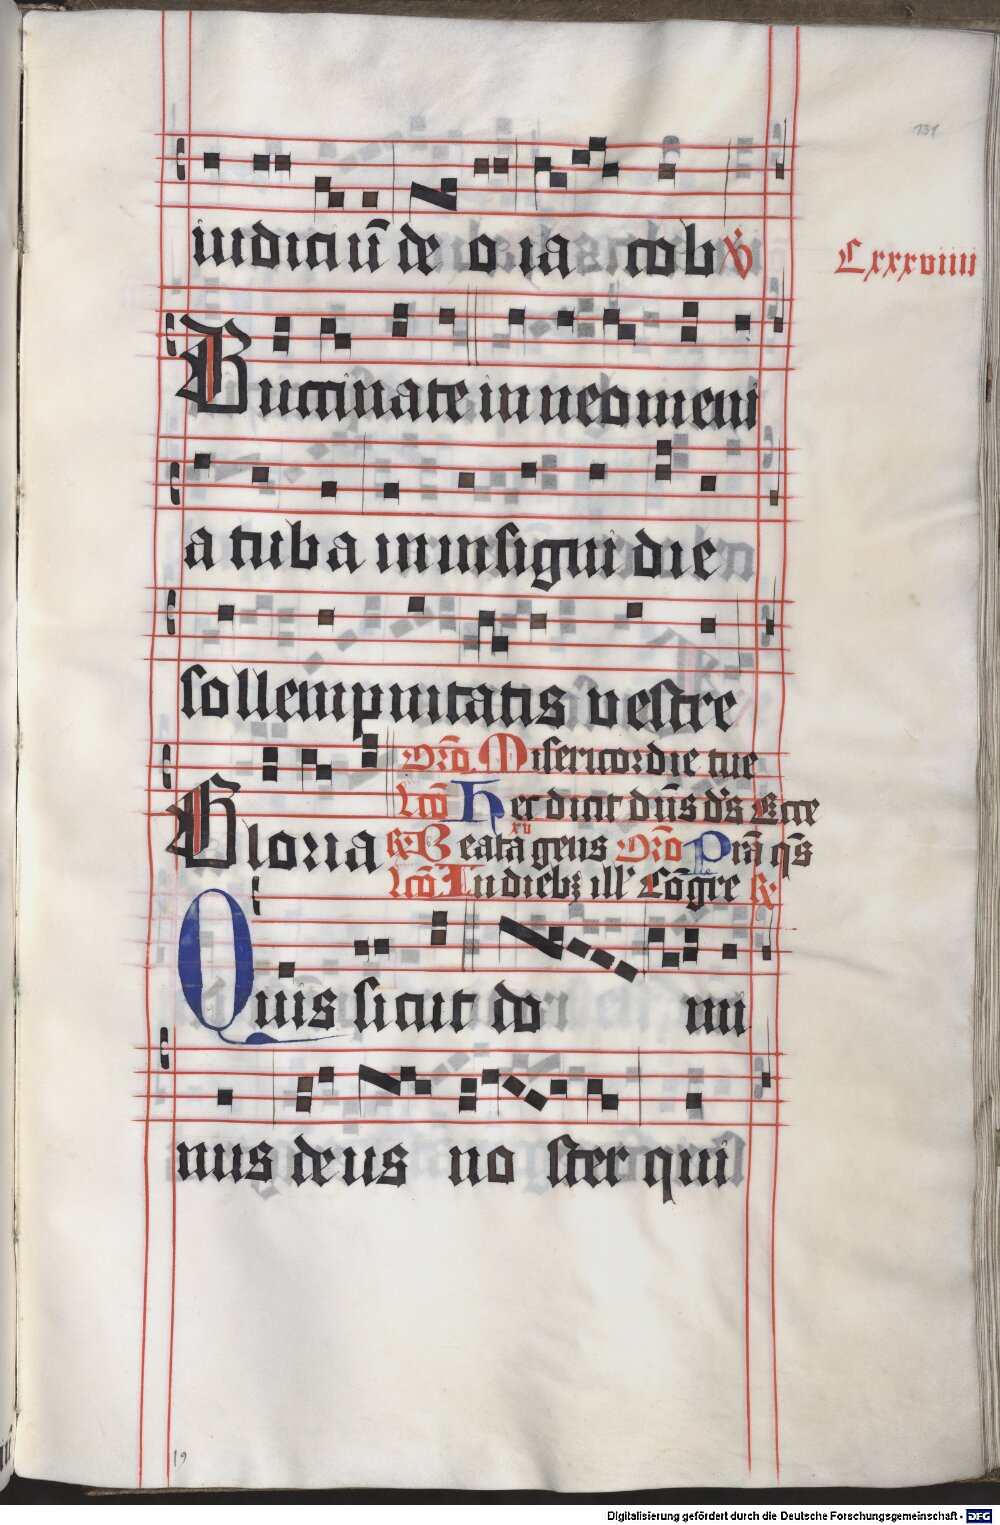 139
iudiciū de o ia cob v̇
Clxxxviiii
Buccinate in neomeni
a tuba in insigni die
sollempnitatis vestre
Or̄o Misericordie tue
Lcō Hec dicit dn̄s ds̄ Ecce
Gloria ℟ Beata gens Or̄o Pr̄a qs̄
xii
Lcō In diebꝫ ill' Cōgre ℟
Quis sicut do mi
nus deus no ster qui
19
Digitalisierung gefördert durch die Deutsche Forschungsgemeinschaft - DFG